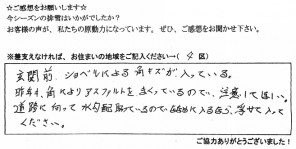 ☆ご感想をお願いします☆
今シーズンの排雪はいかがでしたか？
お客様の声が、私たちの原動力になっています。ぜひ、ご感想をお聞かせ下さい。
※差支えなければ、お住まいの地域をご記入ください→( 区)
玄関前 ショベルによる角キズが入っている。
角によりアスファルトを ているので、注意してほしい。
道路に向って水勾配取っているので 入るほう、浮せて入って
ください。
ご協力ありがとうございました！